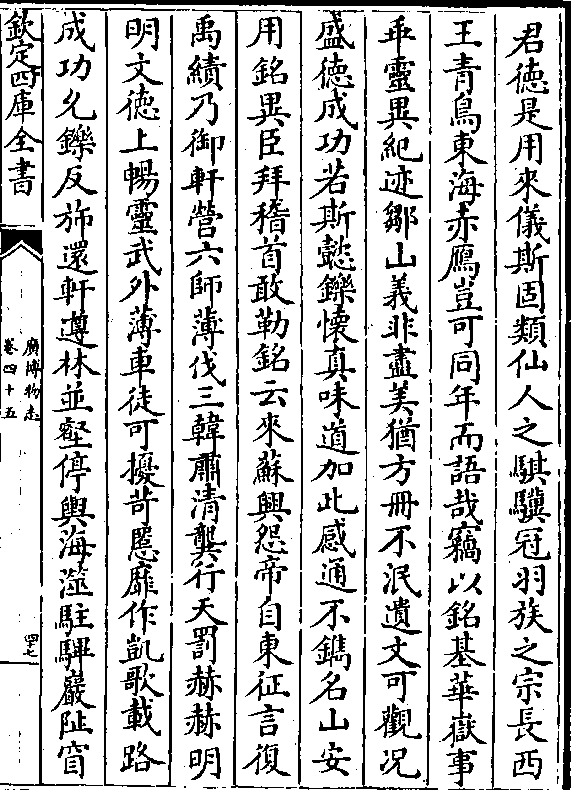 君德是用來儀斯固類仙人之騏驥冠羽族之宗長西
王青鳥東海赤鴈豈可同年而語哉竊以銘基華嶽事
乖靈異紀迹鄒山義非盡美猶方冊不泯遺文可觀況
盛德成功若斯懿鑠懷真味道加此感通不鐫名山安
用銘異臣拜稽首敢勒銘云來蘇興怨帝自東征言復
禹績乃御軒營六師薄伐三韓肅清龔行天罰赫赫明
明文德上暢靈武外薄車徒可擾苛慝靡作凱歌載路
成功允鑠反斾還軒遵林並壑停輿海澨駐驆巖阯窅
欽定四庫全書
廣博物志
卷四十五
四七